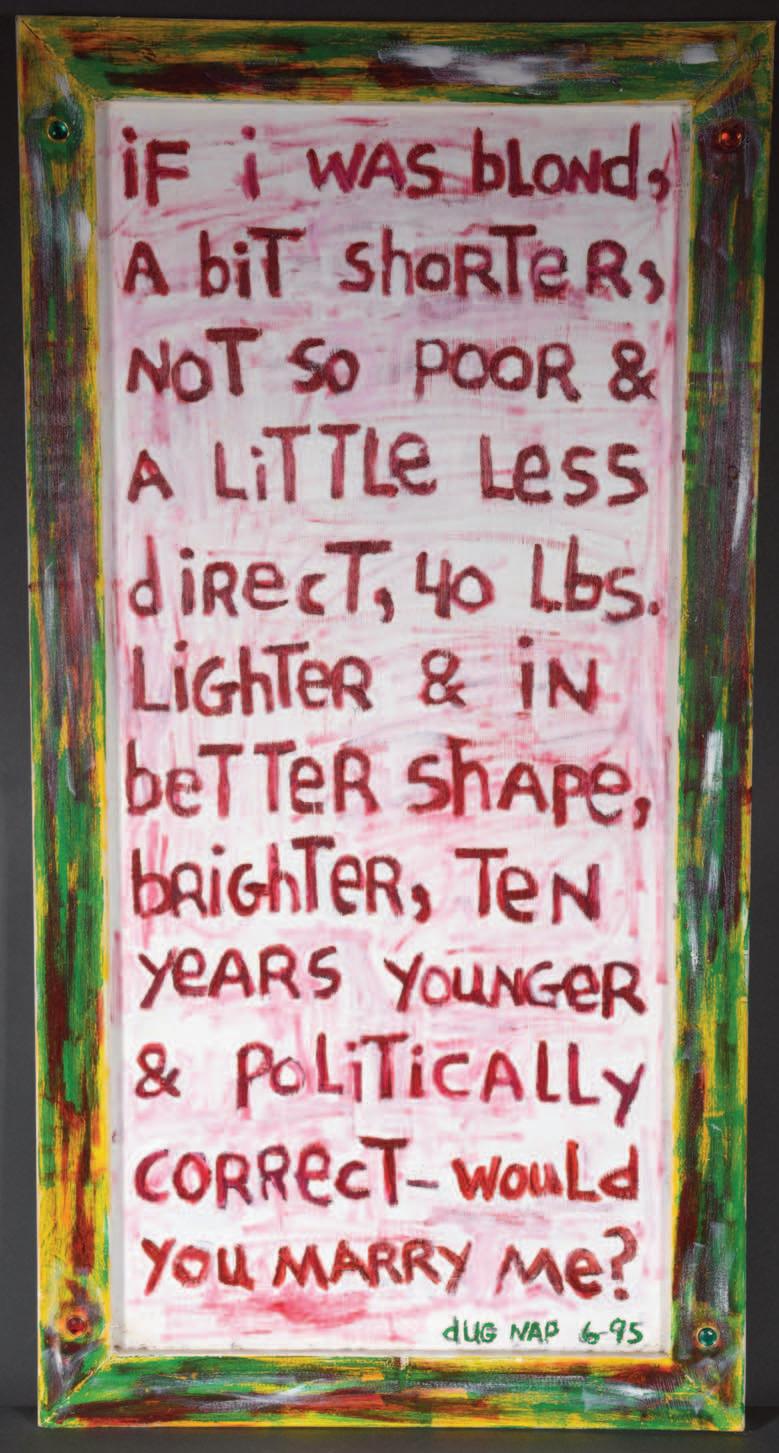 iF i WAS bLoNd,
A biT shoRTeR,
NoT So PooR &
A LiTTLe Less
diRecT, 40 Lbs.
LiGhTeR & iN
beTTeR ShAPe,
bRiGhTeR, TeN
yeARS youNGeR
& PoLiTiCALLy
CoRRecT- wouLd
you MARRy Me?
dUG NAP 6-95